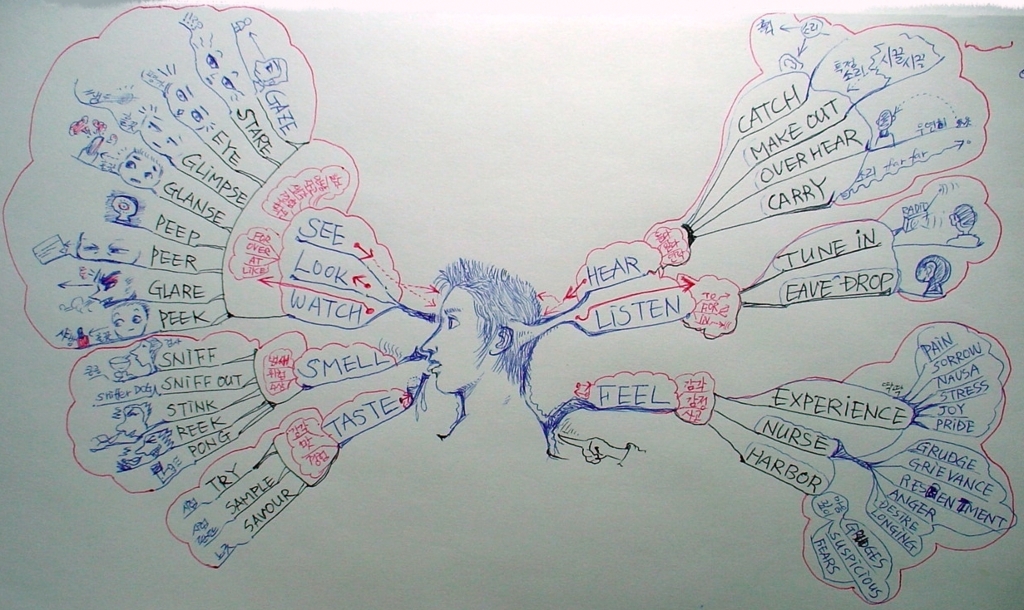 GAZE
STARE
EYE
GLIMPSE
GLANSE
PEEP
PEER
GLARE
PEEK
FOR
OVER
AT
LIKE
SEE
LOOK
WATCH
SNIFF
SNIFF OUT
STINK
REEK
PONG
SMELL
TASTE
TRY
SAMPLE
SAVOUR
소리
CATCH
MAKE OUT
OVERHEAR
CARRY
특정
소리
시끌시끌
소리 far far
HEAR
LISTEN
TO
FOR
IN
TUNE IN
EAVE-DROP
RADIO
FEEL
감각
감정
사고
EXPERIENCE
NURSE
HARBOR
PAIN
SORROW
NAUSA
STRESS
JOY
PRIDE
GRUDGE
GRIEVANCE
RESENTMENT
ANGER
DESIRE
LONGING
GRUDGES
SUSPICIOUS
FEARS